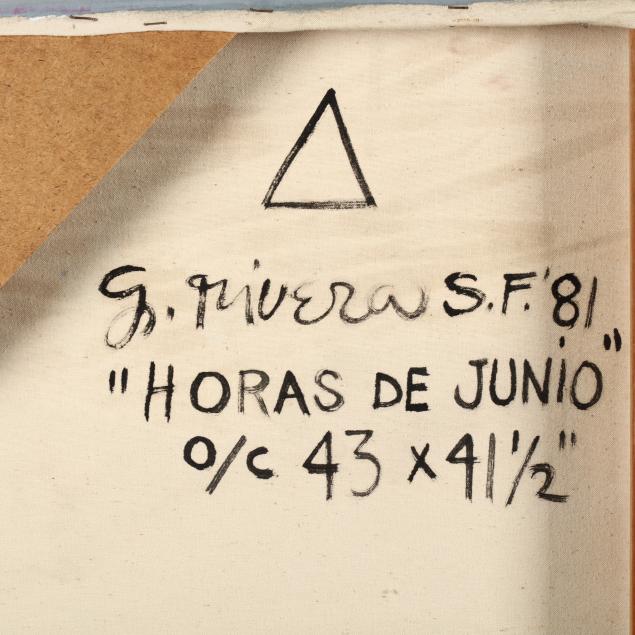 G. rivera S.F.'81
"HORAS DE JUNiO"
o/c 43 x 41 1/2"